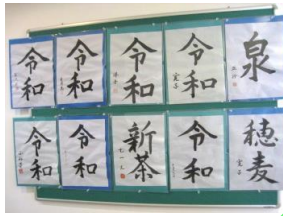 令和
令和
令和
令和
泉
令和
令和
新茶
令和
穂麦